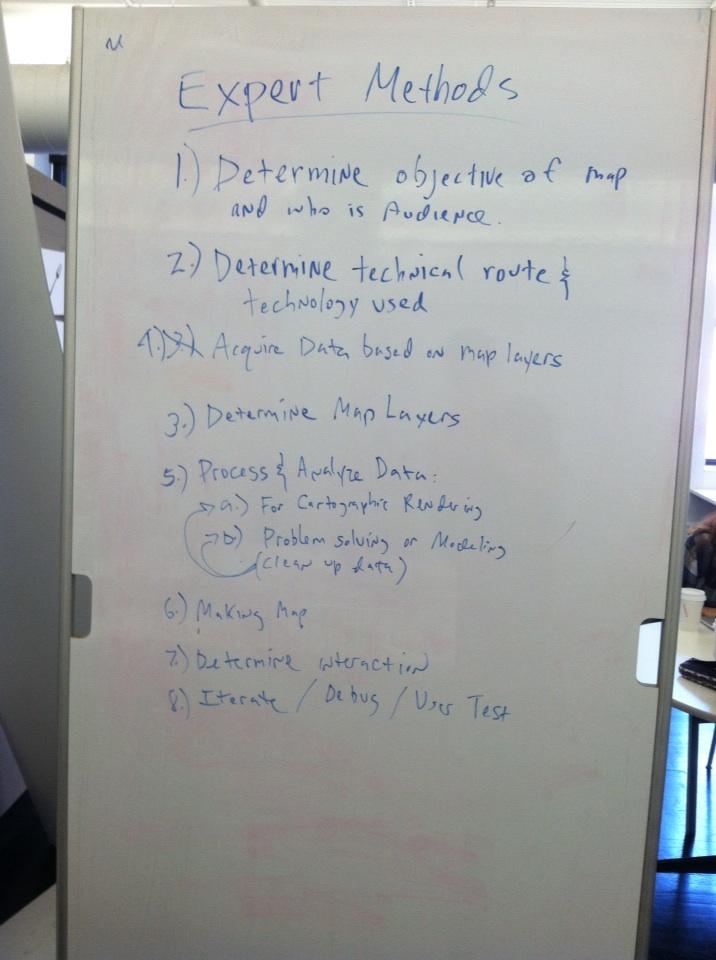 Expert Methods
1.) Determine objective of map
and who is Audience.
2.) Determine technical route &
technology used
4.) 3.) Acquire Data based on map layers
3.) Determine Map Layers
5.) Process & Analyze Data:
a.) For Cartographic Rendering
b.) Problem solving or Modeling
(clean up data)
6.) Making Map
7.) Determine interaction
8.) Iterate / Debug / User Test